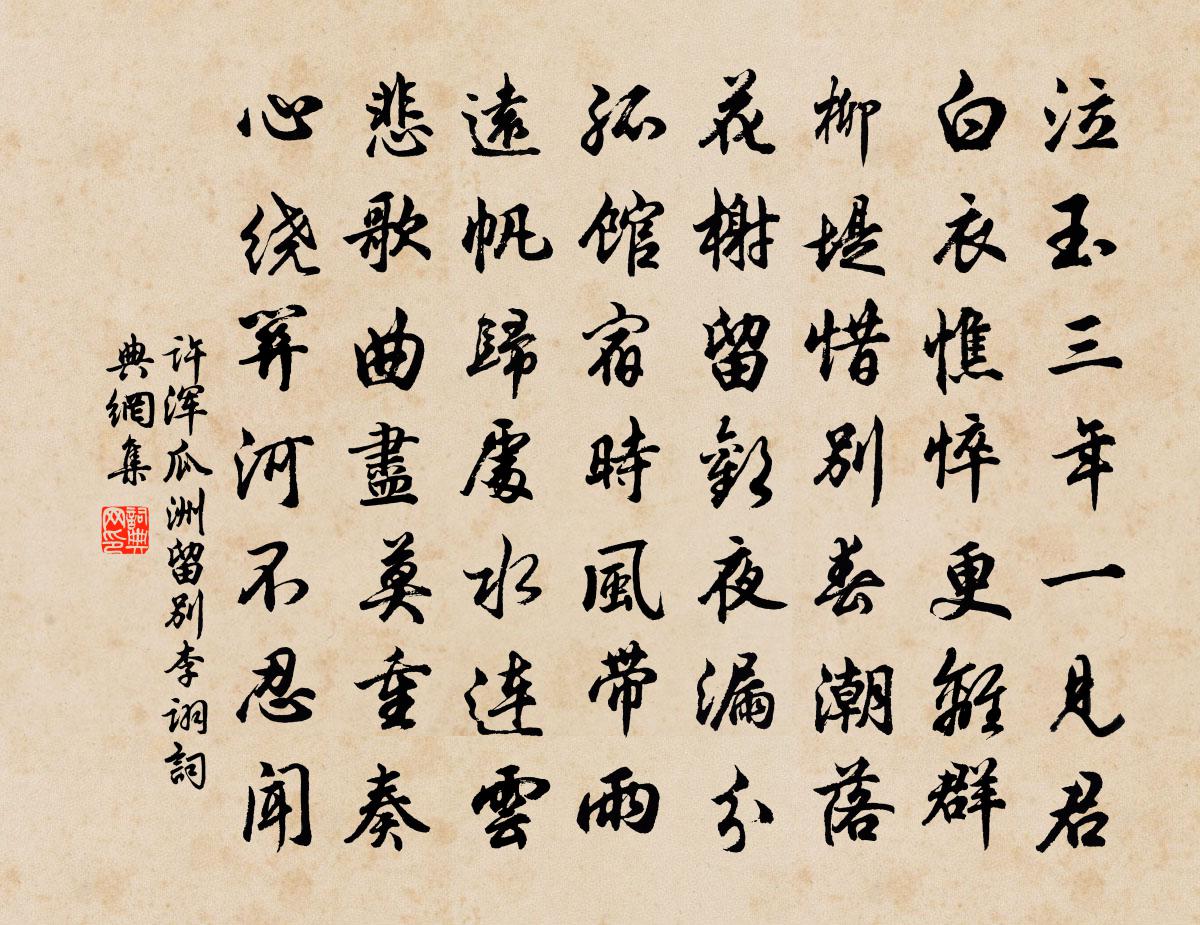 泣玉三年一見君
白衣憔悴更離群
柳堤惜别春潮落
花榭留歡夜漏分
孤館宿時風帶雨
遠帆歸處水連雲
悲歌曲盡莫重奏
心绕關河不忍聞
许浑瓜洲留别李诩詞
典網集
詞典网印